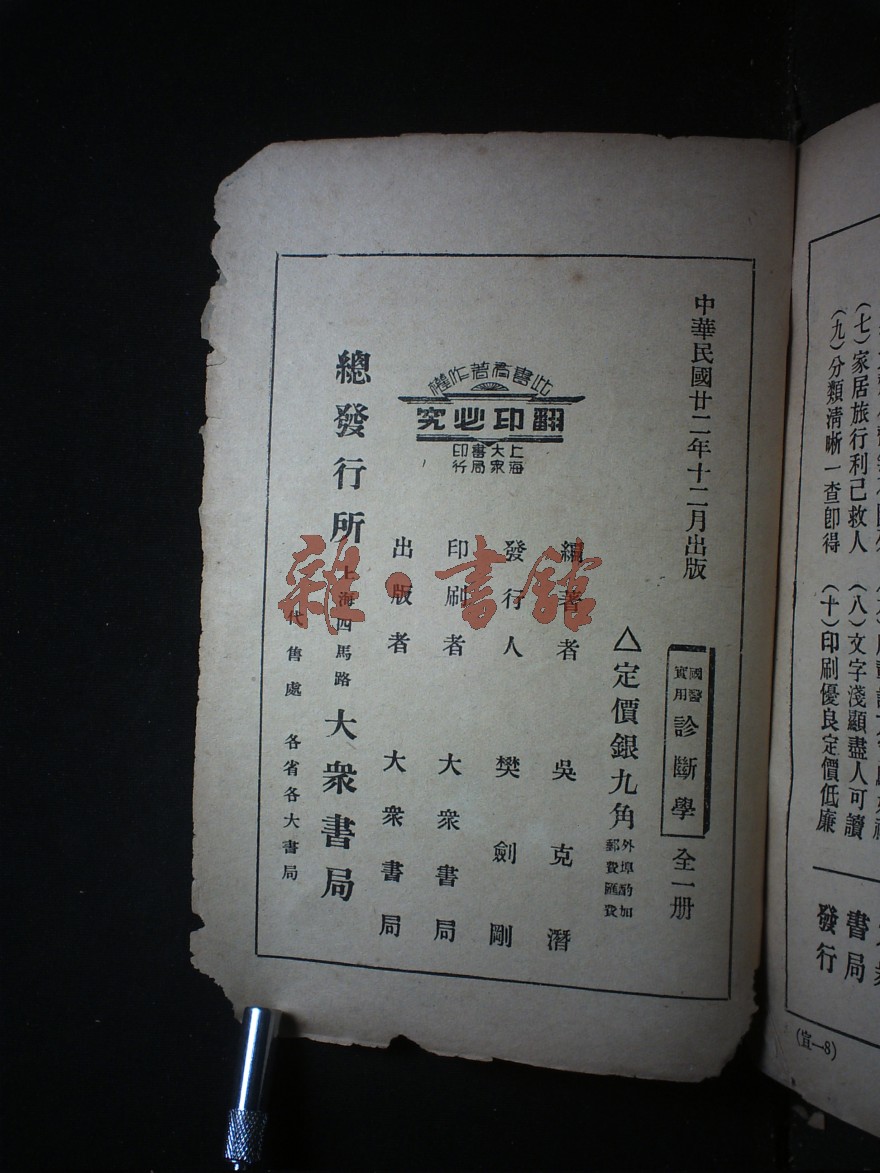 中華民國廿二年十二月出版
國醫實用
診斷學
全一册
△定價銀九角
外埠酌加
郵費匯費
編著者 吳克潛
發行人 樊劍剛
印刷者 大衆書局
出版者 大衆書局
此書有著作權
翻印必究
上海
大衆
書局
印行
總發行所 上海四馬路 大衆書局
代售處 各省各大書局
雜·書館
(七)家居旅行利己救人
(八)文字淺顯盡人可讀
(九)分類清晰一查卽得
(十)印刷優良定價低廉
書局
發行
(宣—8)